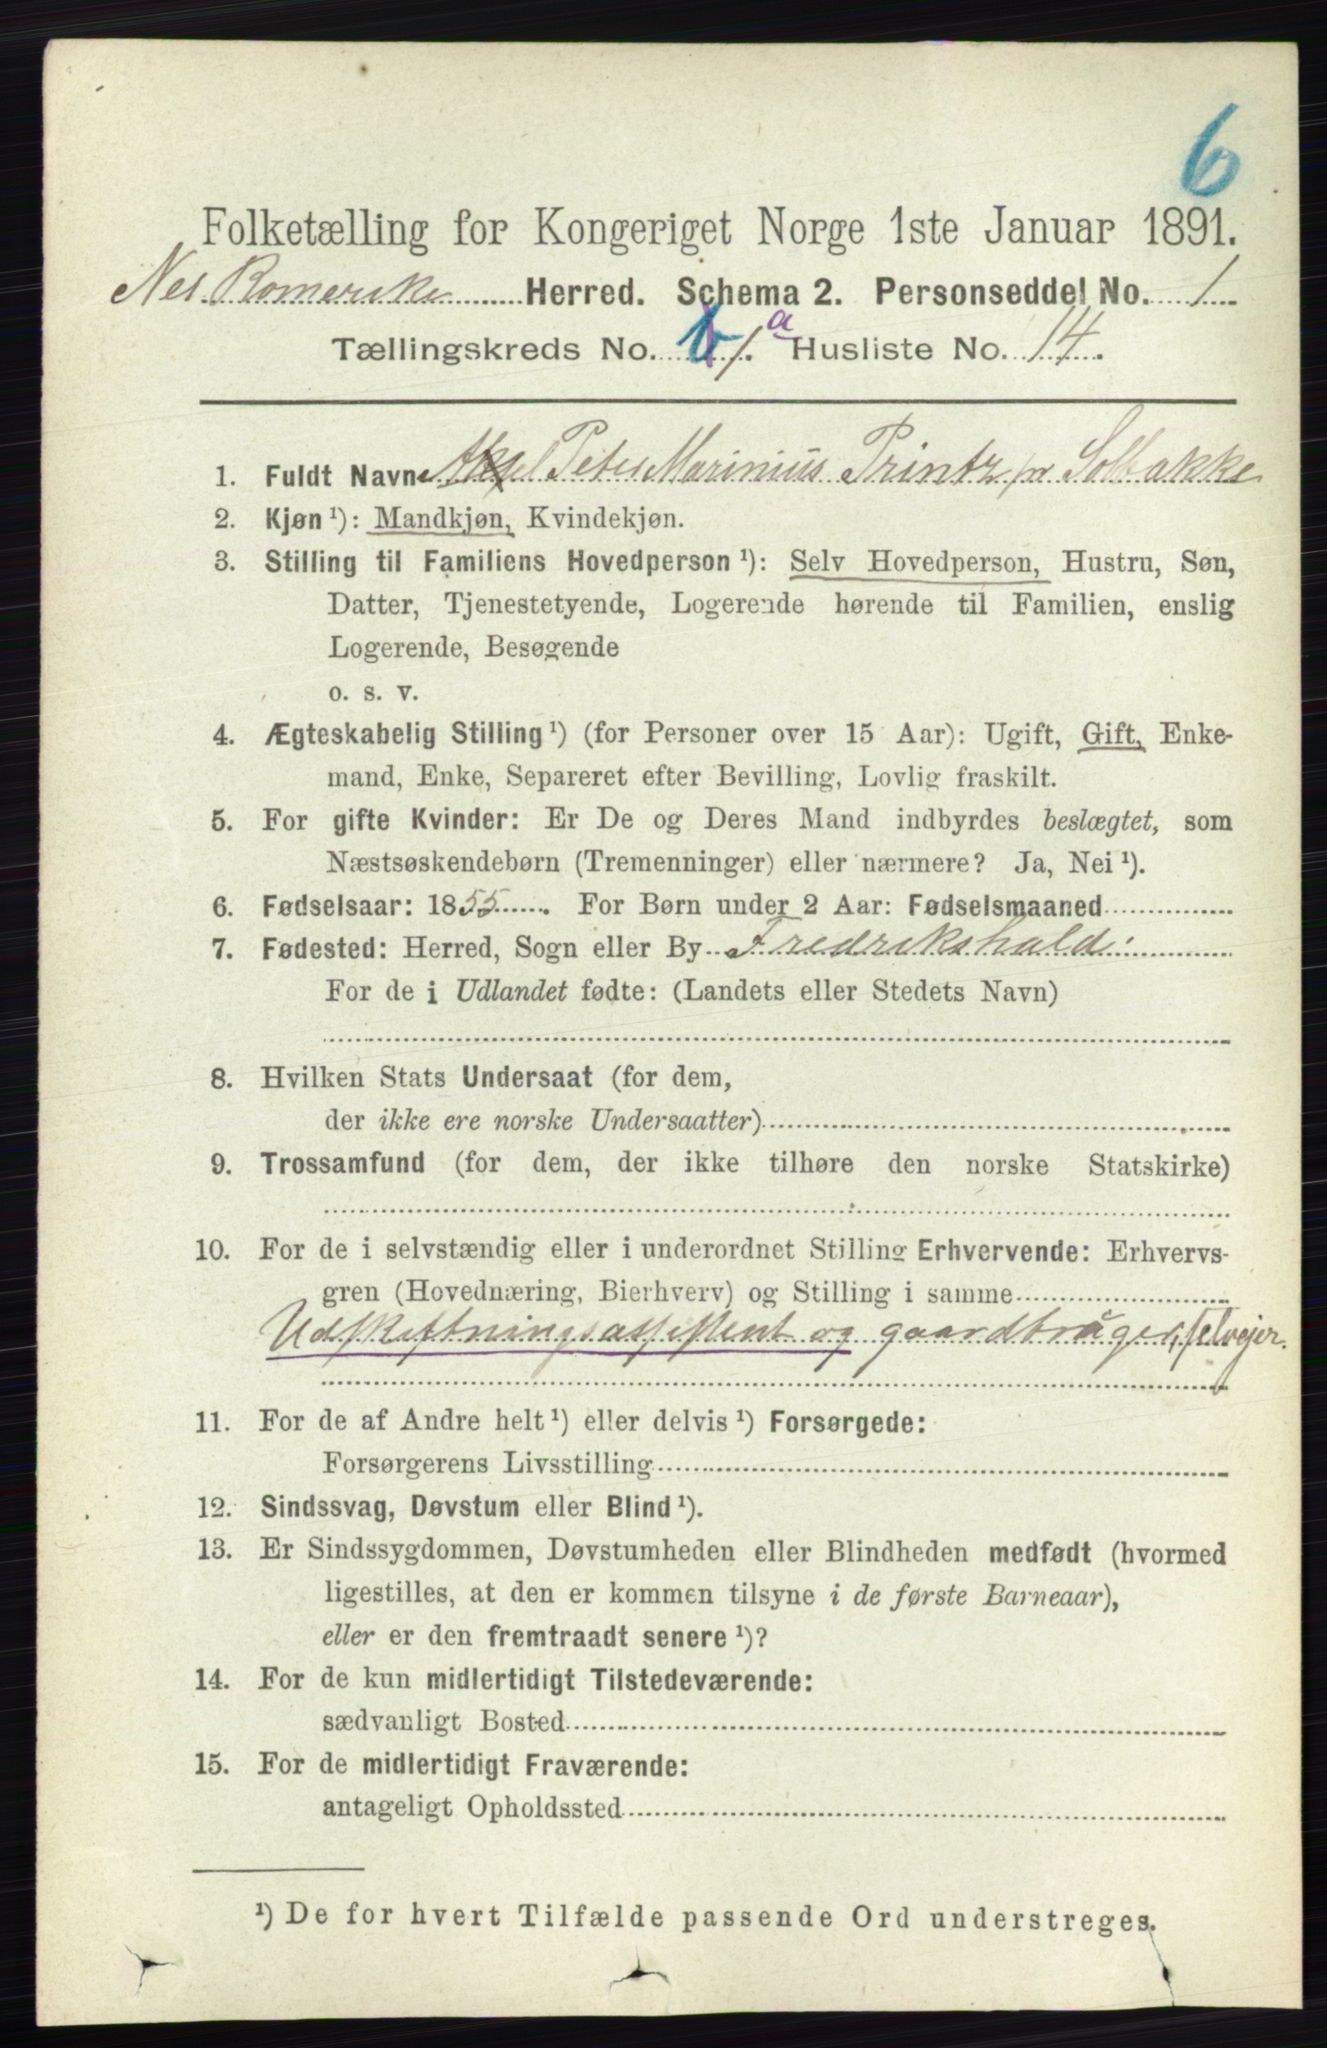 6
Folketælling for Kongeriget Norge 1ste Januar 1891.
Nes Romerike Herred. Schema 2. Personseddel No. 1
Tællingskreds No. 1a. Husliste No. 14.
1. Fuldt Navn Aksel Peter Marinius Printz, Solbakke
2. Kjøn ¹): Mandkjøn, Kvindekjøn.
3. Stilling til Familiens Hovedperson ¹): Selv Hovedperson, Hustru, Søn,
Datter, Tjenestetyende, Logerende hørende til Familien, enslig
Logerende, Besøgende
o. s. v.
4. Ægteskabelig Stilling ¹) (for Personer over 15 Aar): Ugift, Gift, Enke-
mand, Enke, Separeret efter Bevilling, Lovlig fraskilt.
5. For gifte Kvinder: Er De og Deres Mand indbyrdes beslægtet, som
Næstsøskendebørn (Tremenninger) eller nærmere? Ja, Nei ¹).
6. Fødselsaar: 1855. For Børn under 2 Aar: Fødselsmaaned
7. Fødested: Herred, Sogn eller By Fredrikshald.
For de i Udlandet fødte: (Landets eller Stedets Navn)
8. Hvilken Stats Undersaat (for dem,
der ikke ere norske Undersaatter)
9. Trossamfund (for dem, der ikke tilhøre den norske Statskirke)
10. For de i selvstændig eller i underordnet Stilling Erhvervende: Erhvervs-
gren (Hovednæring, Bierhverv) og Stilling i samme
Udskiftningsassistent og gaardbruger, selvejer.
11. For de af Andre helt ¹) eller delvis ¹) Forsørgede:
Forsørgerens Livsstilling
12. Sindssvag, Døvstum eller Blind ¹).
13. Er Sindssygdommen, Døvstumheden eller Blindheden medfødt (hvormed
ligestilles, at den er kommen tilsyne i de første Barneaar),
eller er den fremtraadt senere ¹)?
14. For de kun midlertidigt Tilstedeværende:
sædvanligt Bosted
15. For de midlertidigt Fraværende:
antageligt Opholdssted
¹) De for hvert Tilfælde passende Ord understreges.